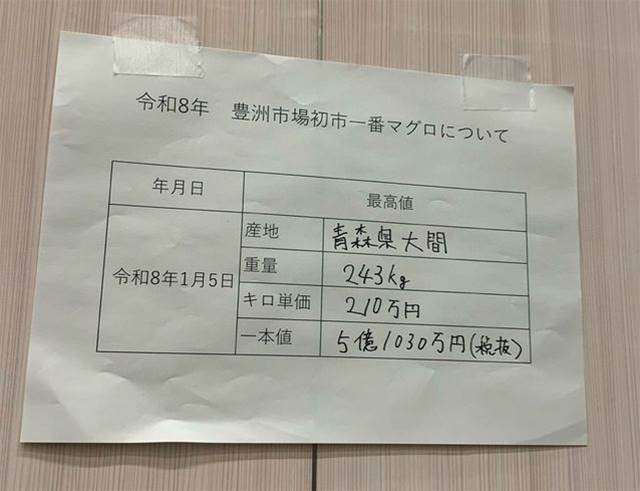 令和8年　豊洲市場初市一番マグロについて
年月日　最高値
令和8年1月5日
産地　青森県大間
重量　243kg
キロ単価　210万円
一本値　5億1030万円(税抜)